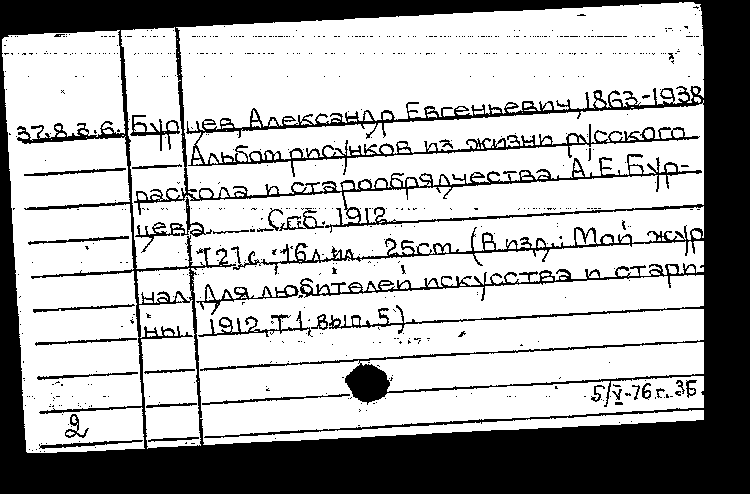 37.8.3.6. Бурцев, Александр Евгеньевич, 1863-1938
Альбом рисунков из жизни русского
раскола и старообрядчества. А.Е. Бур-
цева. Спб., 1912.
[2] с., 16 л. ил. 25 см. (В изд.: Мой жур
нал для любителей искусства и стари-
ны. 1912, Т.1, вып. 5).
5/V-76 г. ЗБ.
2